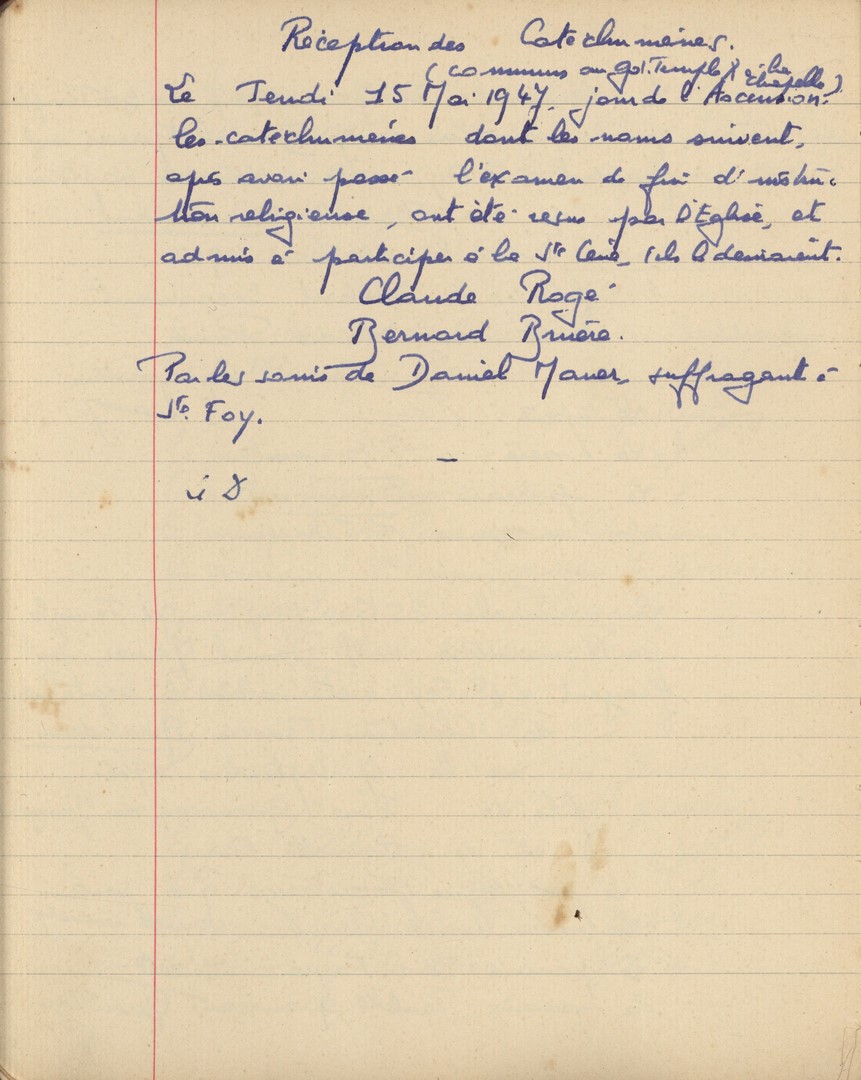 Réception des Catéchumènes.
(communs au gd. Temple) chapelle)
Le Jeudi 15 Mai 1947, jour de l'Ascension.
les catechumenes dont les noms suivent,
après avoir passé l'examen de fin d'instruc-
tion religieuse, ont été reçus par l'Eglise, et
admis à participer à la Ste Cène, s'ils le desiraient.
Claude Rogé
Bernard Bruère.
Par les soins de Daniel Maner, suffragant à
Ste. Foy.